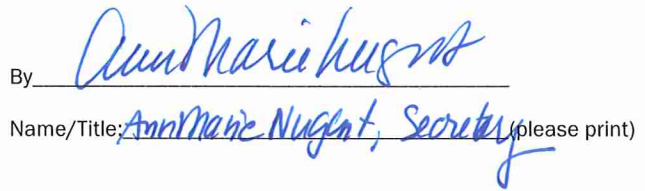 By AnnMarie Nugent
Name/Title: AnnMarie Nugent, Secretary (please print)